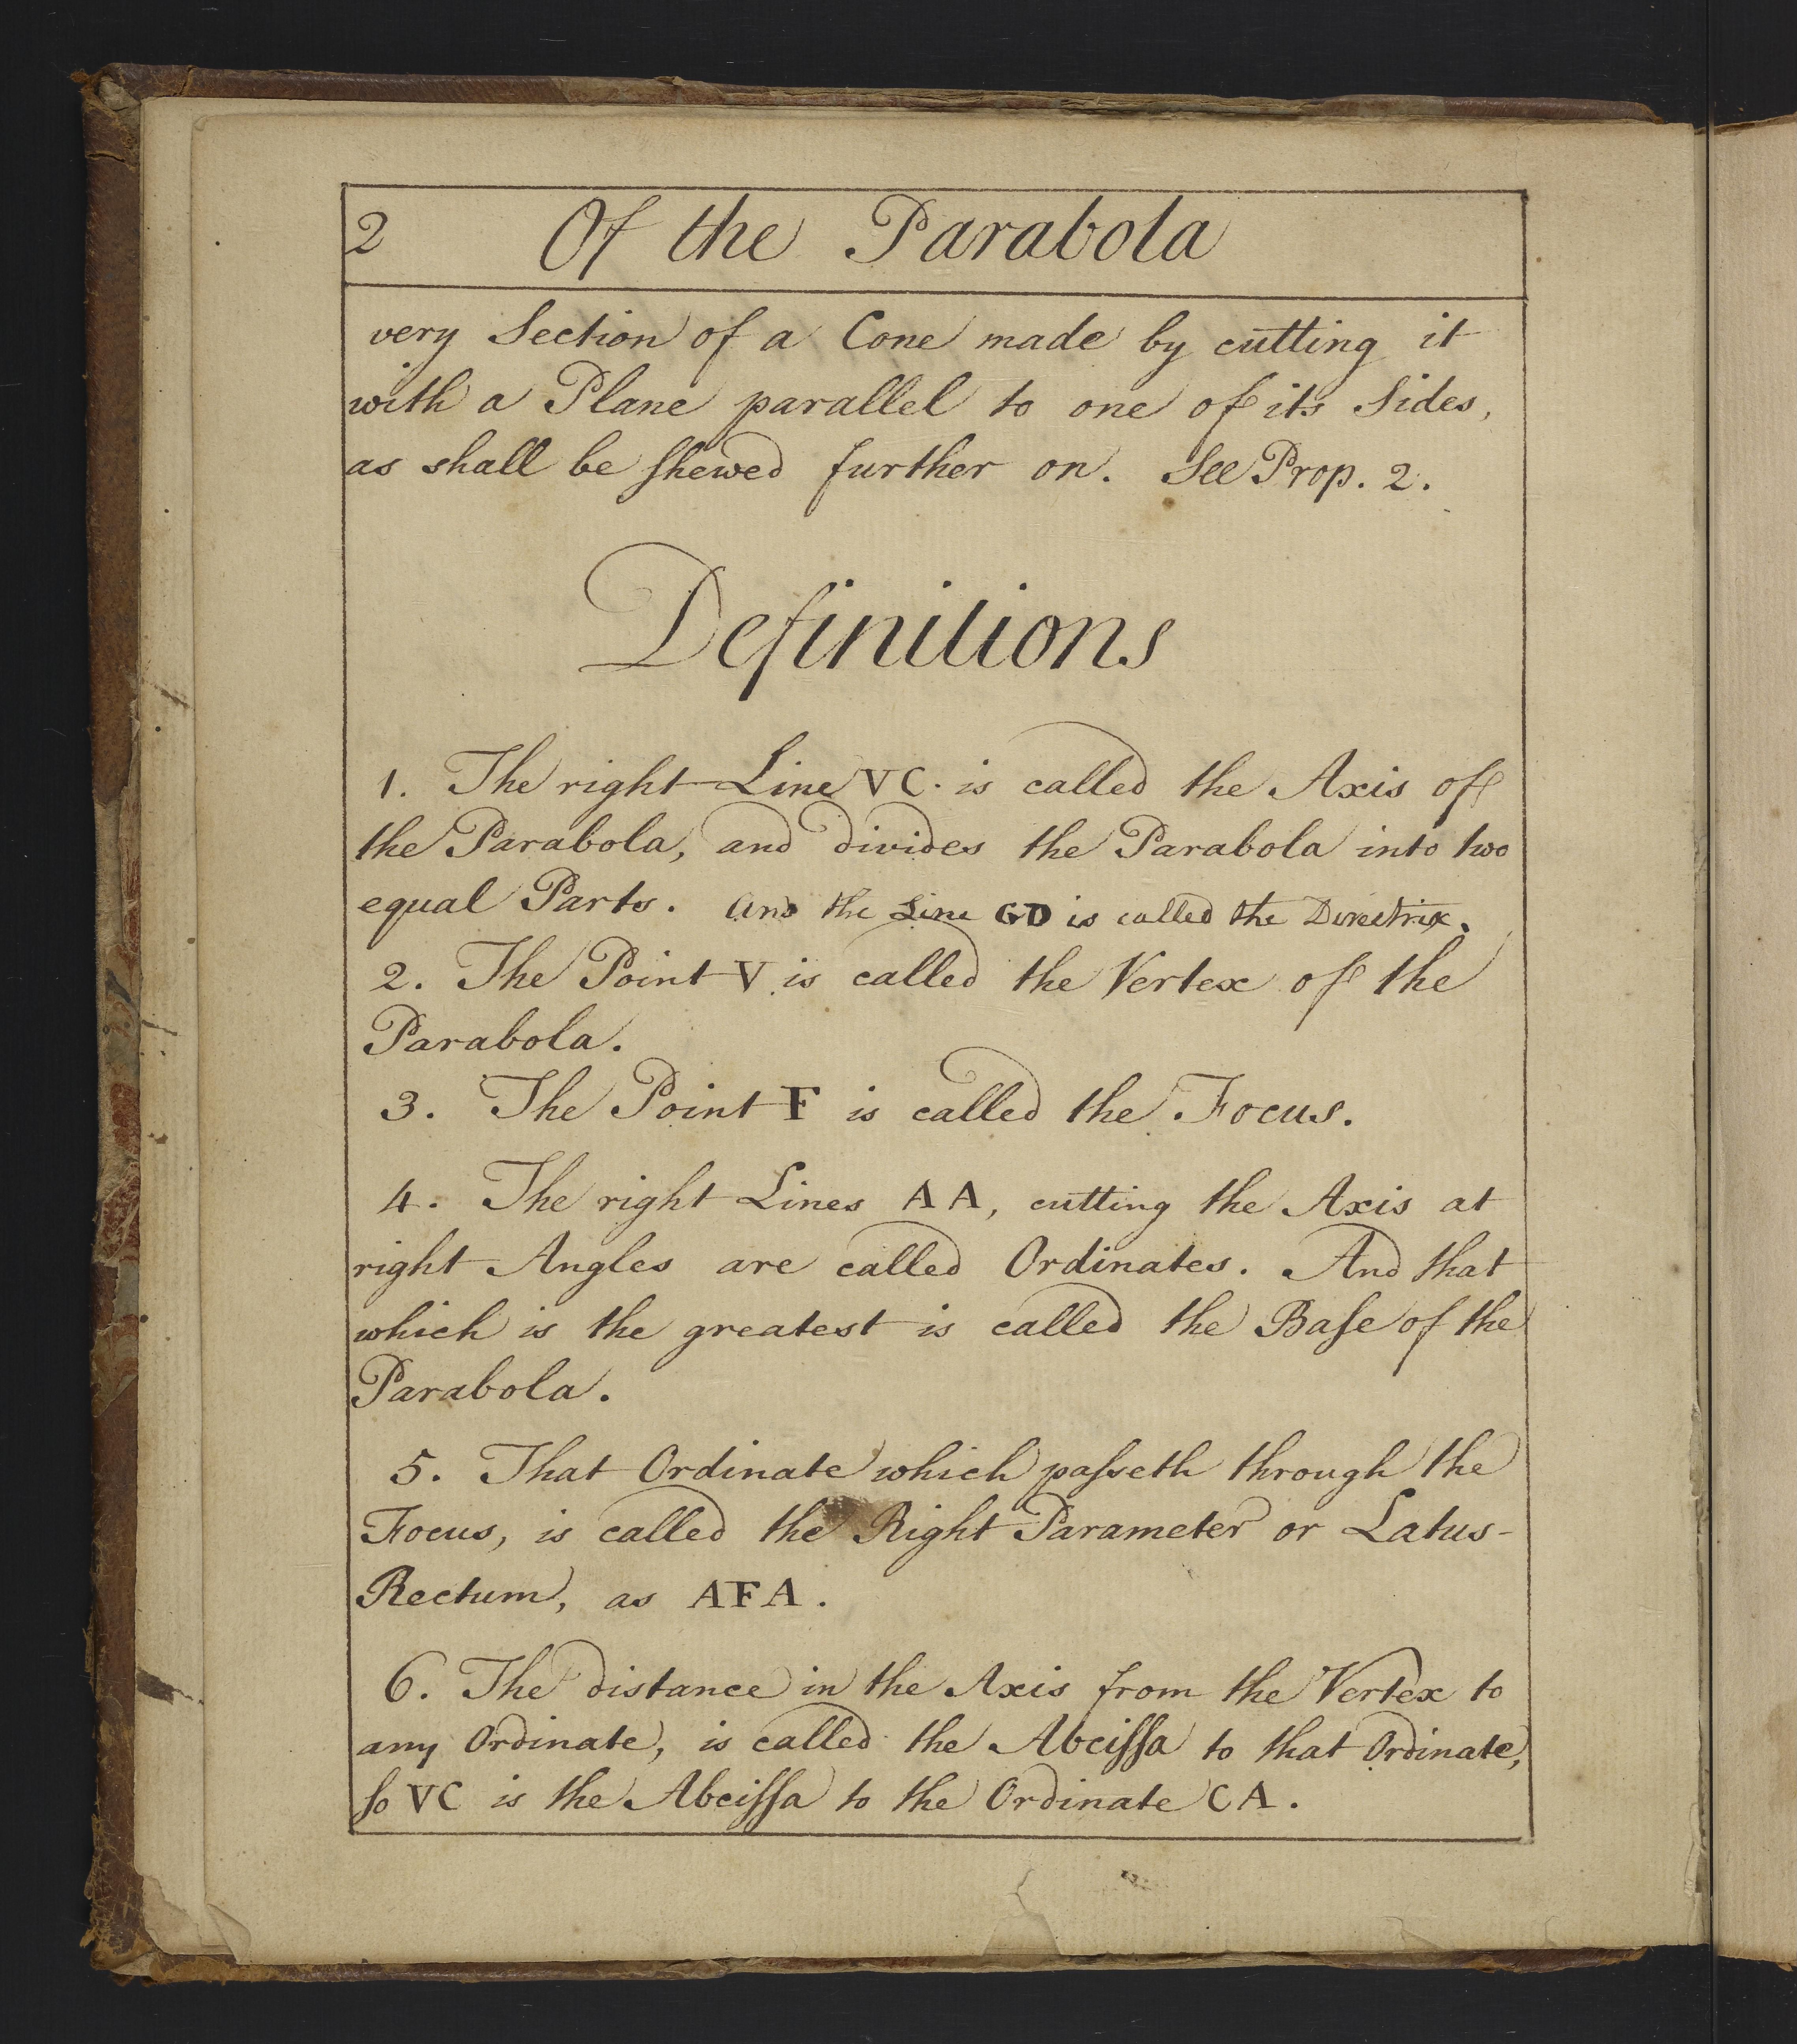 2 Of the Parabola
very Section of a Cone made by cutting it
with a Plane parallel to one of its Sides,
as shall be ſhewed further on. See Prop. 2.
Definitions
1. The right Line VC. is called the Axis of
the Parabola, and divides the Parabola into two
equal Parts. And the Line GD is called the Directrix.
2. The Point V is called the Vertex of the
Parabola.
3. The Point F is called the Focus.
4. The right Lines AA, cutting the Axis at
right Angles are called Ordinates. And that
which is the greatest is called the Baſe of the
Parabola.
5. That Ordinate which paſseth through the
Focus, is called the Right Parameter or Latus-
Rectum, as AFA.
6. The distance in the Axis from the Vertex to
any Ordinate, is called the Abciſſa to that Ordinate,
ſo VC is the Abciſſa to the Ordinate CA.